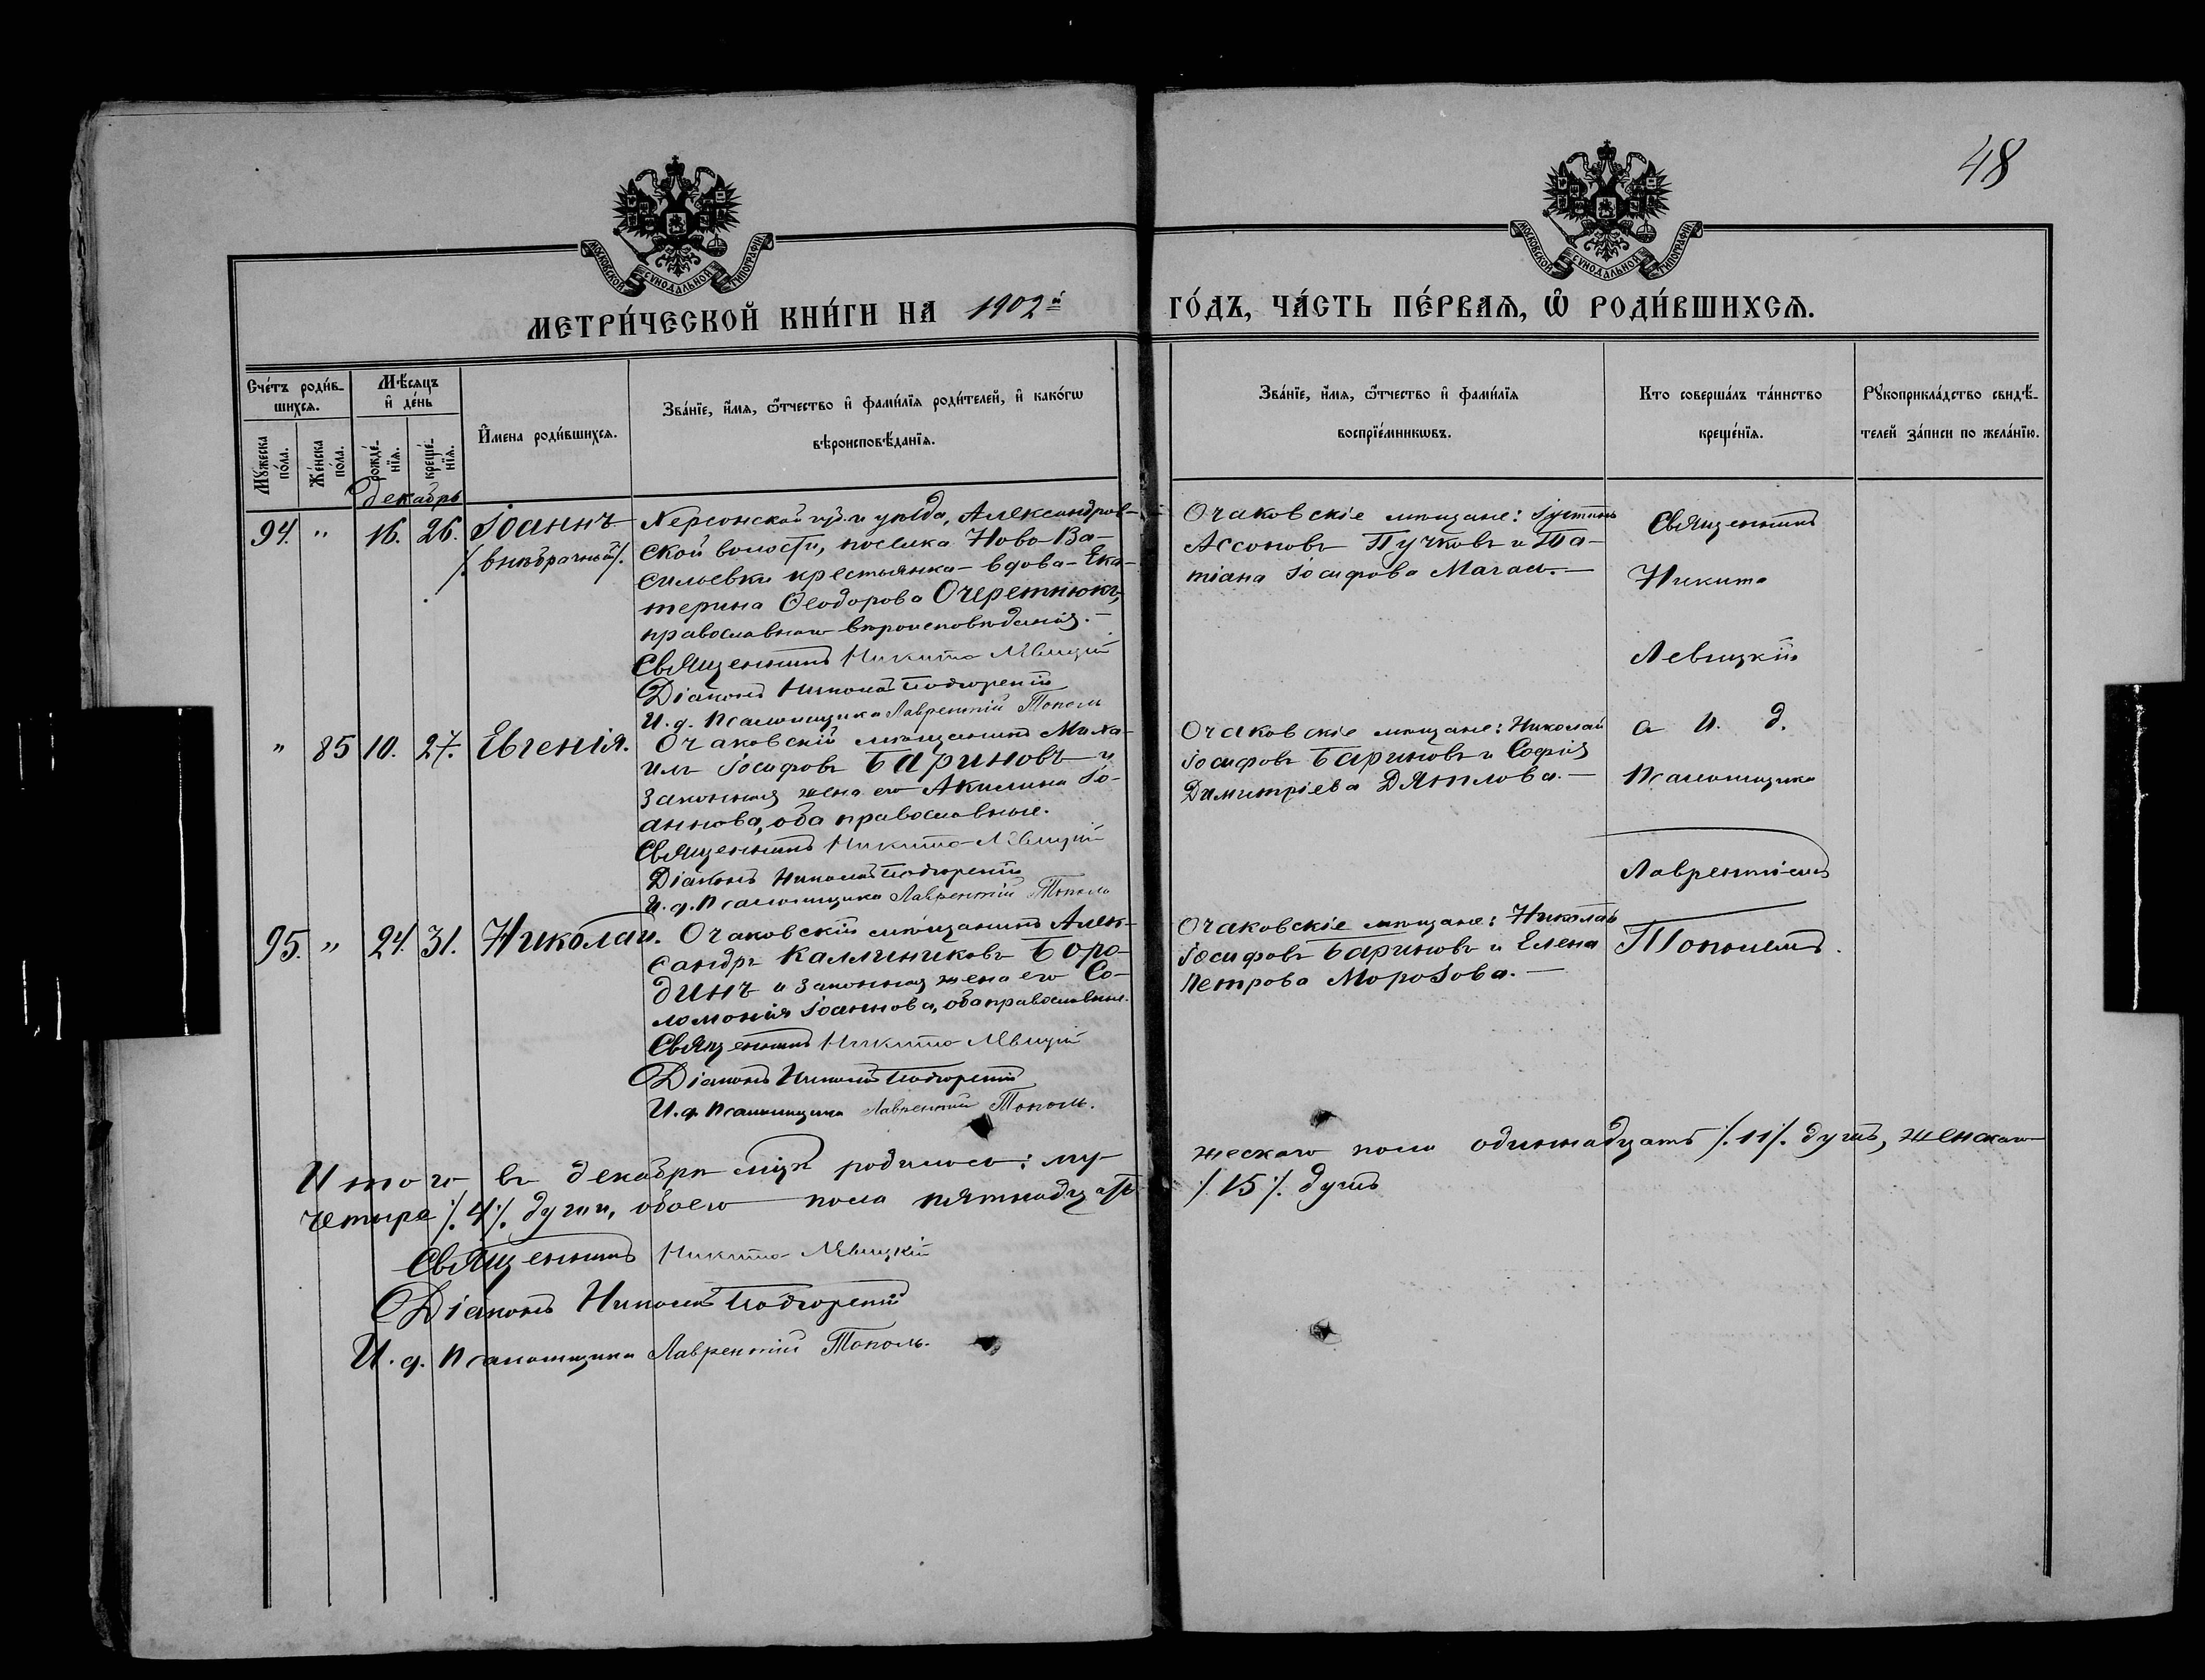 48
МОСКОВСКОЙ СѴНОДАЛЬНОЙ ТИПОГРАФІИ
МОСКОВСКОЙ СѴНОДАЛЬНОЙ ТИПОГРАФІИ
МЕТРИ́ЧЕСКОЙ КНИ́ГИ НА 1902й ГО́ДЪ, ЧА́СТЬ ПЕ́РВАѦ, Ѡ҆ РОДИ́ВШИХСѦ.
Сче́тъ роди́в-
шихсѧ.
Мꙋ́жеска
по́ла.
Же́нска
по́ла.
Мѣ́сѧцъ
и҆ де́нь
рожде́-
нїѧ.
креще́-
нїѧ.
И҆мена роди́вшихсѧ.
Зва́нїе, и҆́мѧ, ѻ҆́тчество и҆ фами́лїѧ роди́телей, и҆ како́гѡ
вѣроисповѣ́данїѧ.
Зва́нїе, и҆́мѧ, ѻ҆́тчество и҆ фами́лїѧ
воспрїе́мникѡвъ.
Кто соверша́лъ та́инство
креще́нїѧ.
Рꙋкоприкла́дство свидѣ́-
телей за́писи по жела́нїю.
Декабрь
94. " 16. 26. Іоаннъ
/.внѣбрачный/.
Херсонской губ. и уѣзда, Александров-
ской волости, поселка Ново-Ва-
сильевки крестьянка-вдова-Ека-
терина Ѳеодорова Очеретнюкъ,
православнаго вѣроисповѣданія.-
Священникъ Никита Левицкій
Діаконъ Николай Подгорскій
И. д. Псаломщика Лаврентій Тополь
Очаковскіе мѣщане: Іустинъ
Ассоновъ Пучковъ и Та-
тіана Іосифова Магась.-
Священникъ
Никита
Левицкій
" 85 10. 27. Евгенія.
Очаковскій мѣщанинъ Миха-
илъ Іосифовъ Бариновъ и
законная жена его Акилина Іо-
аннова, оба православные.
Священникъ Никита Левицкій
Діаконъ Николай Подгорскій
И. д. Псаломщика Лаврентій Тополь
Очаковскіе мѣщане: Николай
Іосифовъ Бариновъ и Софія
Димитріева Дятлова.-
а И. д.
Псаломщика
Лаврентіемъ
95. " 24. 31. Николай.
Очаковскій мѣщанинъ Алек-
сандръ Каллиниковъ Боро-
динъ и законная жена его Со-
ломонія Іоаннова, оба православные.
Священникъ Никита Левицкій
Діаконъ Николай Подгорскій
И. д. Псаломщика Лаврентій Тополь.
Очаковскіе мѣщане: Николай
Іосифовъ Бариновъ и Елена
Петрова Морозова.-
Тополемъ.
Итого въ декабрѣ мцѣ родилось: му-
жескаго пола одиннадцать /.11/. душъ, женскаго
четыре /.4/. души, обоего пола пятнадцать
/.15/. душъ
Священникъ Никита Левицкій
Діаконъ Николай Подгорскій
И. д. Псаломщика Лаврентій Тополь.